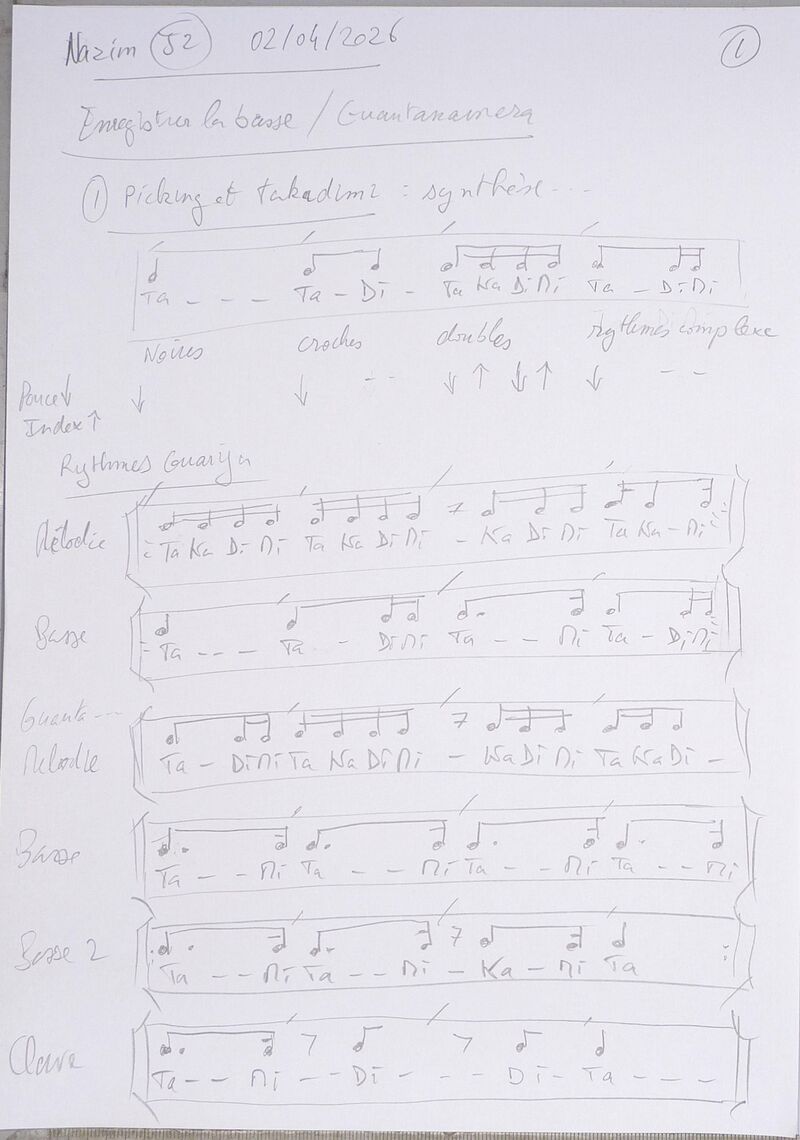 Nazim 52 02/04/2026 1
Enregistrer la basse / Guantanamera
1 Picking et takadimi : synthèse ---
Ta - - - Ta - Di - Ta Ka Di Mi Ta - Di Mi
Noires croches doubles rythmes complexe
Pouce ↓ ↓ ↓ -- ↓ ↑ ↓ ↑ ↓ --
Index ↑
Rythmes
Mélodie Ta Ka Di Mi Ta Ka Di Mi - Ka Di Mi Ta Ka - Mi
Basse Ta - - - Ta - Di Mi Ta - - Mi Ta - Di Mi
Guanta ---
Melodie Ta - Di Mi Ta Ka Di Mi - Ka Di Mi Ta Ka Di -
Basse Ta - - Mi Ta - - Mi Ta - - Mi Ta - - Mi
Basse 2 Ta - - Mi Ta - - Mi - Ka - Mi Ta
Clave Ta - - Mi - - Di - - - Di - Ta - - -